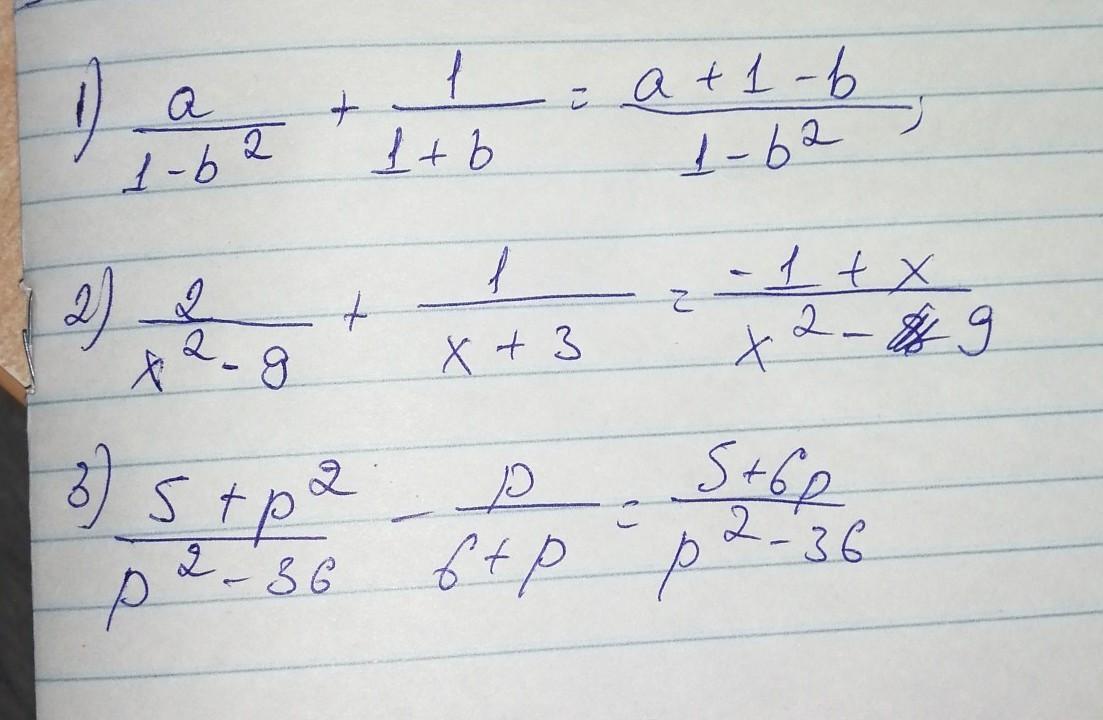 1) a/(1-b²) + 1/(1+b) = (a+1-b)/(1-b²);
2) 2/(x²-9) + 1/(x+3) = (-1+x)/(x²-9)
3) (5+p²)/(p²-36) - p/(6+p) = (5+6p)/(p²-36)